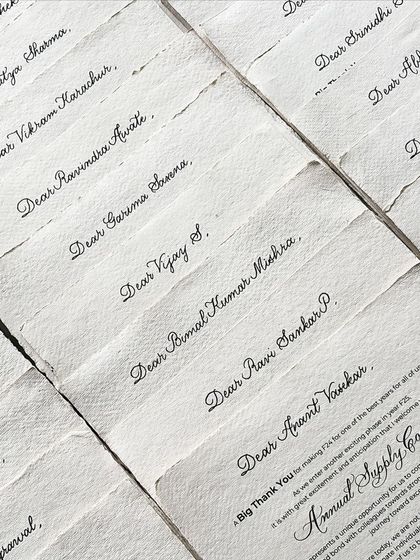 Sharma,
Vikram Karachur,
Dear Ravindra Awate,
Dear Garima Saxena,
Dear Vijay S,
Dear Bimal Kumar Mishra,
Dear Ravi Sankar P,
Dear Anant Varekar,
A Big Thank You for making F24 for one of the best years for all of
As we enter another exciting phase in year F25,
it is with great excitement and anticipation that I welcome
Annual Supply
presents a unique opportunity for us to
bond with colleagues towards
journey toward
today, we are
Dear Srinidhi S
Dear